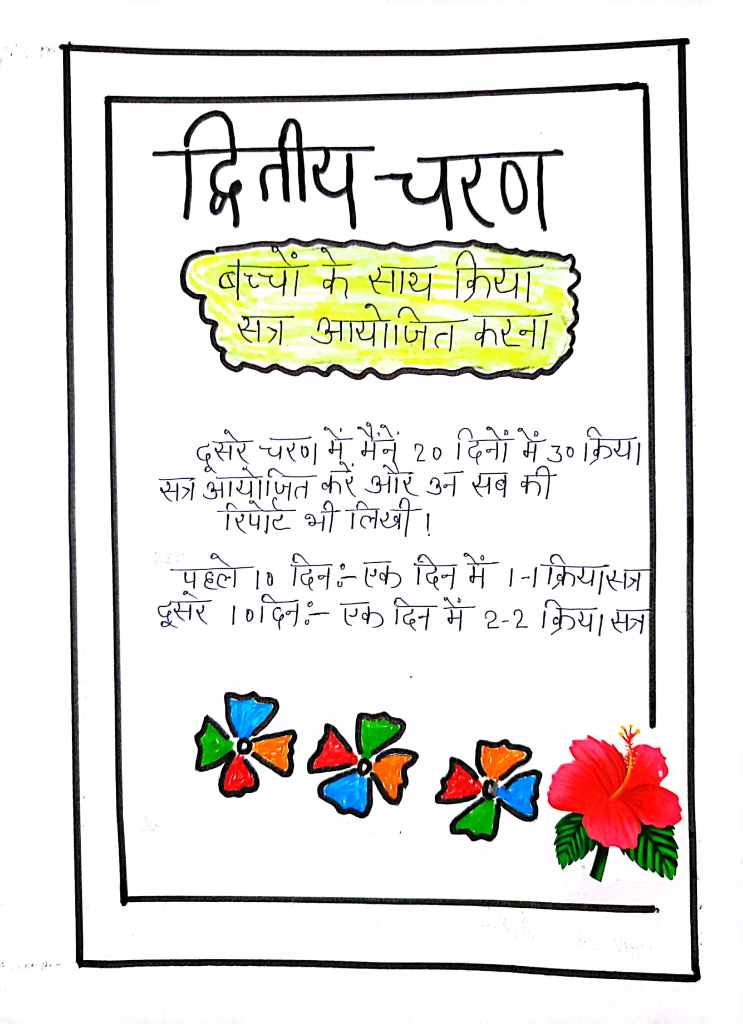 द्वितीय चरण
बच्चों के साथ क्रिया
सत्र आयोजित करना
दूसरे चरण में मैंनें 20 दिनों में 30 क्रिया
सत्र आयोजित करें और उन सब की
रिपोर्ट भी लिखी !
पहले 10 दिन :- एक दिन में 1-1 क्रियासत्र
दूसरे 10 दिन :- एक दिन में 2-2 क्रिया सत्र